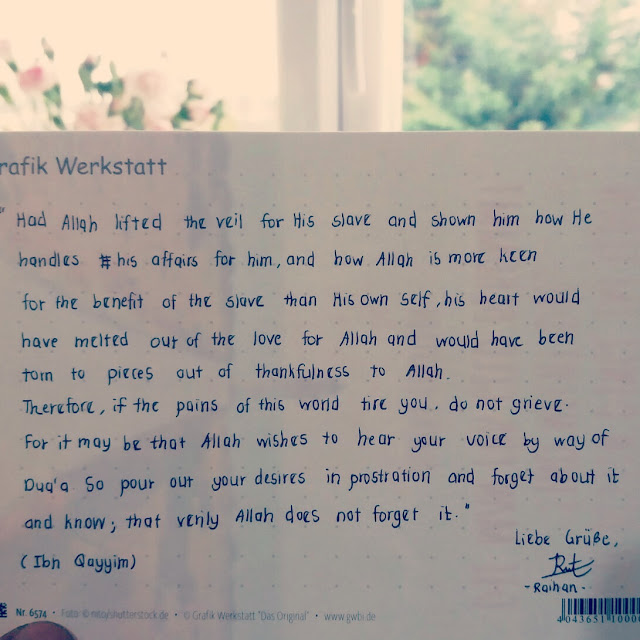 rafik Werkstatt
"Had Allah lifted the veil for His slave and shown him how He
handles his affairs for him, and how Allah is more keen
for the benefit of the slave than His own self, his heart would
have melted out of the love for Allah and would have been
torn to pieces out of thankfulness to Allah.
Therefore, if the pains of this world tire you. do not grieve.
For it may be that Allah wishes to hear your voice by way of
Duq'a So pour out your desires in prostration and forget about it
and know; that verily Allah does not forget it."
(Ibn Qayyim)
Liebe Grüße,
-Raihan-
Nr. 6574 • Foto: © nito/shutterstock.de • © Grafik Werkstatt "Das Original" • www.gwbi.de
4 043651 1000